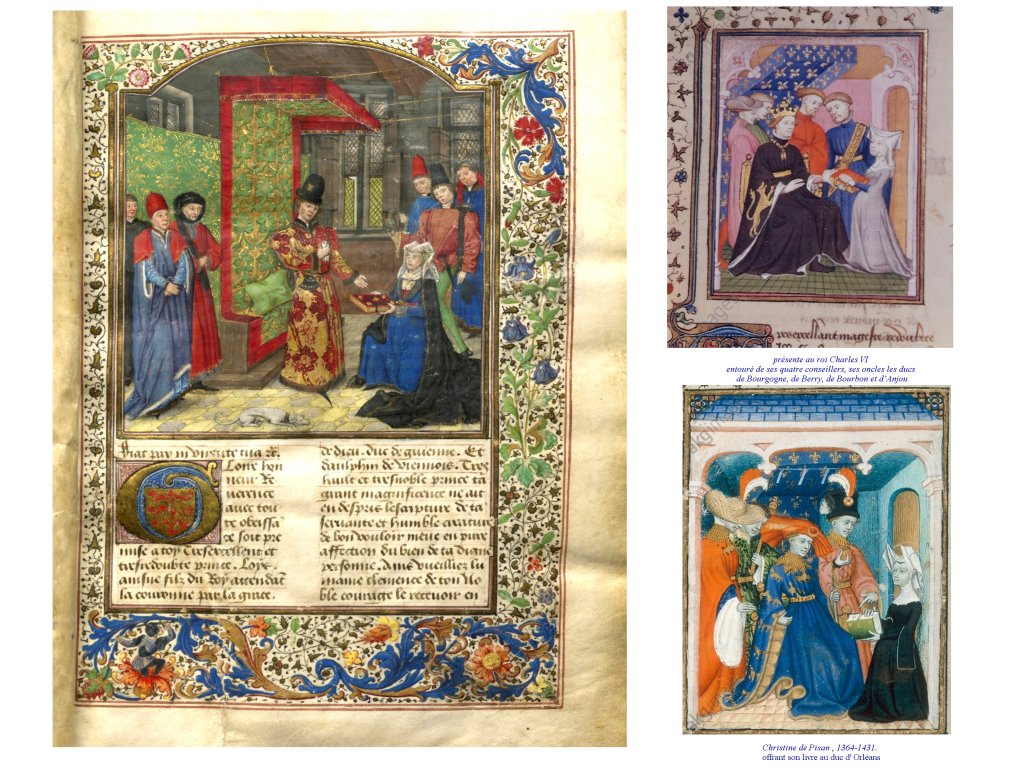 Fiat pax in virtute tua et.
GLoire hon
neur Re
uerence
auec tou
te obeissā
ce soit pre
mise a toy Tresexcellent et
tresredoubte prince. Loys.
ainsne filz du Roy attendāt
sa couronne par la grace.
de dieu. duc de guienne. Et
daulphin de viennois. Tres
hault et tresnoble prince ta
grant magnificence ne ait
en despris lescripture de ta
seruante et humble creature
de bon vouloir meue en pure
affection du bien de ta digne
personne. vueilliez
maine clemence de ton No
ble courage le receuoir en
resexcellant mageste redoubtee
présente au roi Charles VI
entouré de ses quatre conseillers, ses oncles les ducs
de Bourgogne, de Berry, de Bourbon et d'Anjou
Christine de Pisan , 1364-1431.
offrant son livre au duc d' Orléans